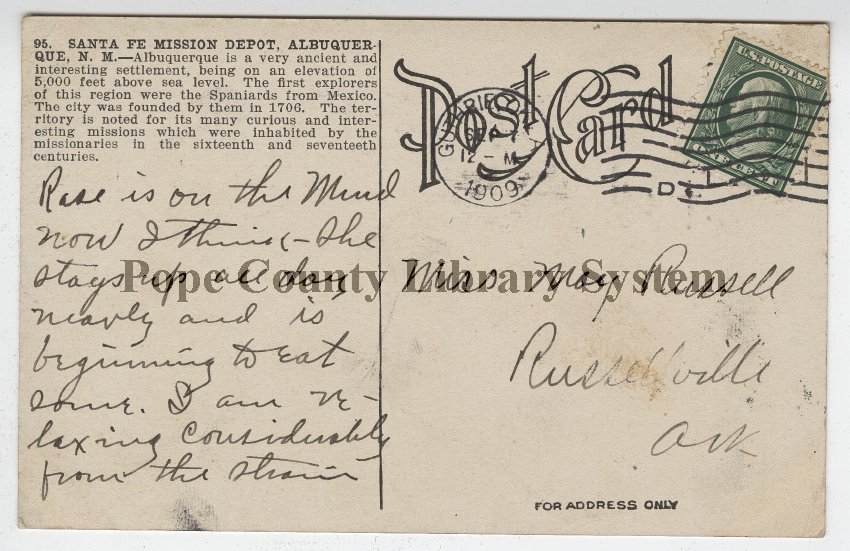 95. SANTA FE MISSION DEPOT, ALBUQUER-
QUE, N. M.—Albuquerque is a very ancient and
interesting settlement, being on an elevation of
5,000 feet above sea level. The first explorers
of this region were the Spaniards from Mexico.
The city was founded by them in 1706. The ter-
ritory is noted for its many curious and inter-
esting missions which were inhabited by the
missionaries in the sixteenth and seventeeth
centuries.
Rose is on the Mend
now I think - She
stays up all day
nearly and is
beginning to eat
some. I am re-
laxing considerably
from the strain
Post Card
GUTHRIE
SEP 7
12 - M
1909
U.S. POSTAGE
Miss May Russell
Russellville
Ark
FOR ADDRESS ONLY
Pope County Library System